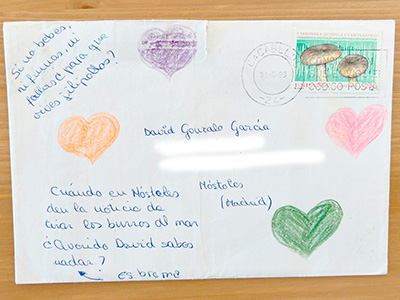 Si no bebes,
ni fumas, ni
follas ¿ para que
vives gilipollas?
David Gonzalo García
Móstoles
(Madrid)
Cuándo en Móstoles
den la noticia de
tirar los burros al mar
¿Querido David sabes
nadar?
es broma
CORREOS
ESPAÑA